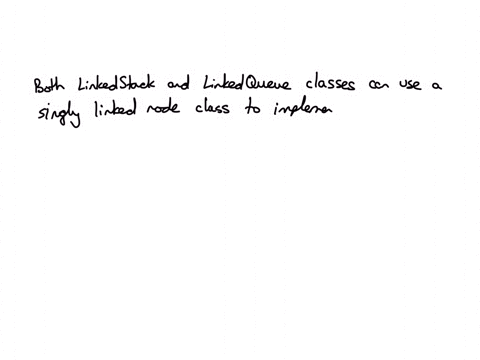 Both LinkedStack and LinkedQueue classes can use a
singly linked node class to implemen